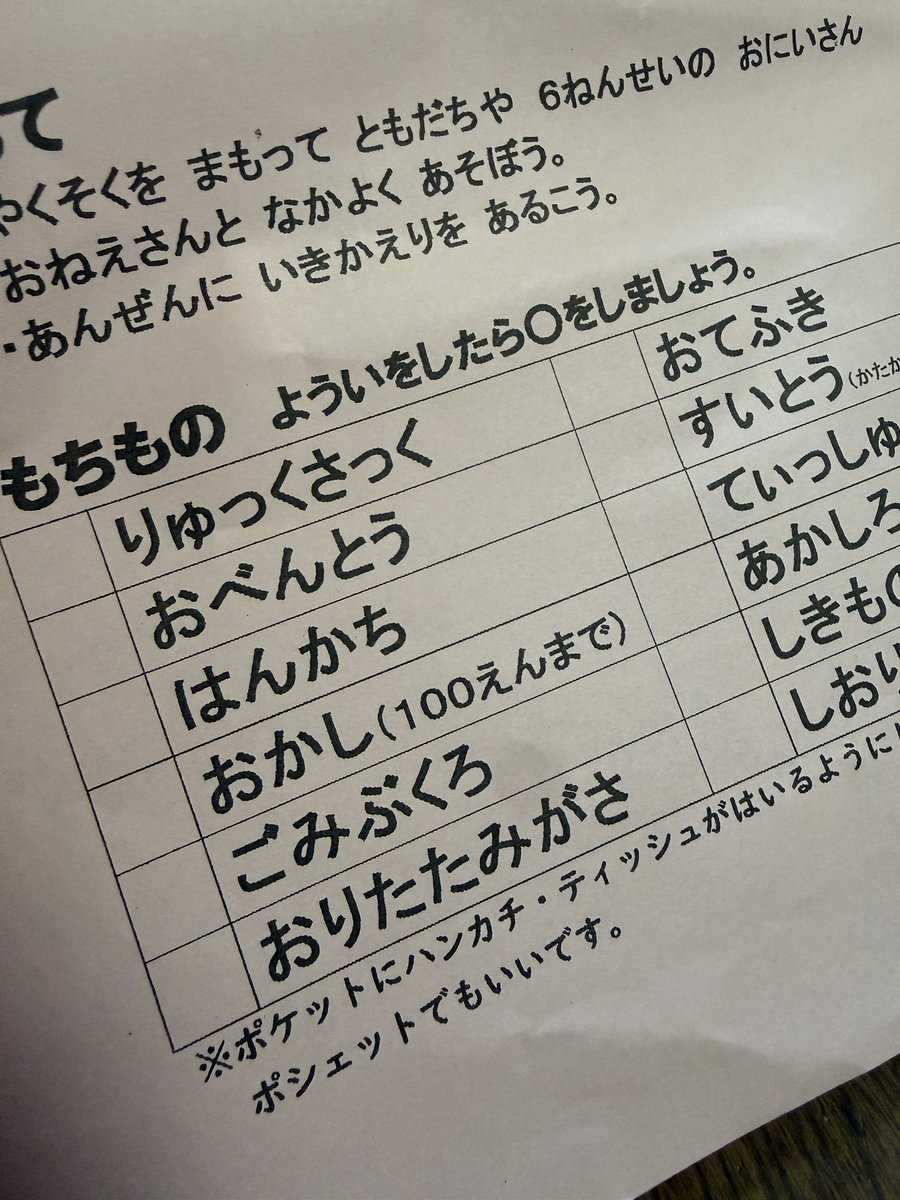 って
やくそくを まもって ともだちや 6ねんせいの おにいさん
おねえさんと なかよく あそぼう。
・あんぜんに いきかえりを あるこう。
もちもの ようい​をしたら〇をしましょう。
りゅっくさっく おてふき
おべんとう すいとう(かたか
はんかち てぃっしゅ
おかし(100えんまで) あかしろ
ごみぶくろ しきもの
おりたたみがさ しおり
※ポケットにハンカチ・ティッシュがはいるように
ポシェットでもいいです。